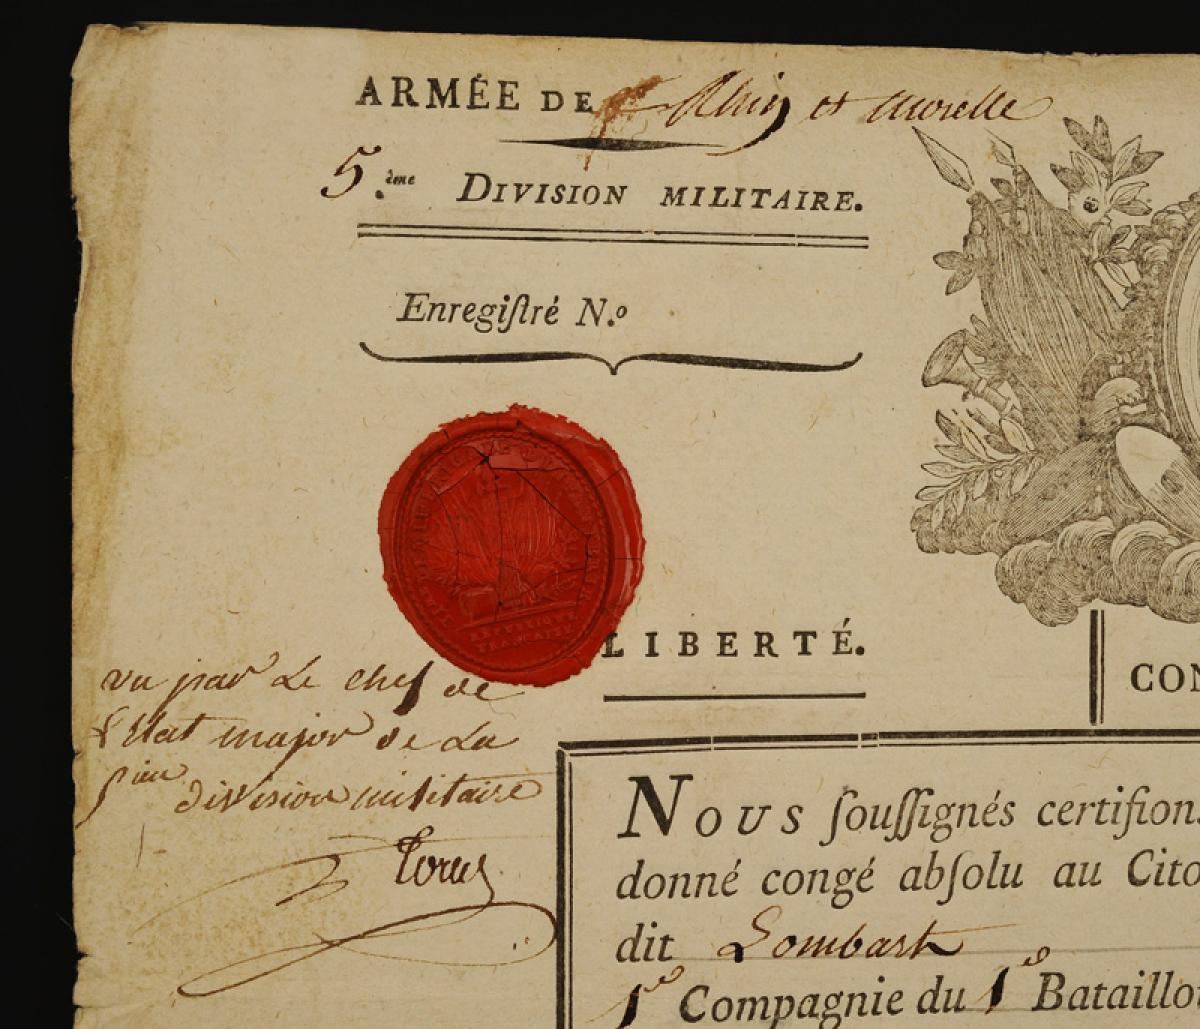 ARMÉE DE Rhin et Moselle
5.ème DIVISION MILITAIRE.
Enregiſtré N.o
RÉPUBLIQUE
FRANÇAISE
LIBERTÉ.
CON
vu par Le chef de
L'Etat major de La
division militaire
Nous ſouſſignés certifion
donné congé abſolu au Cito
dit Lombart
1e Compagnie du 1e Bataillo